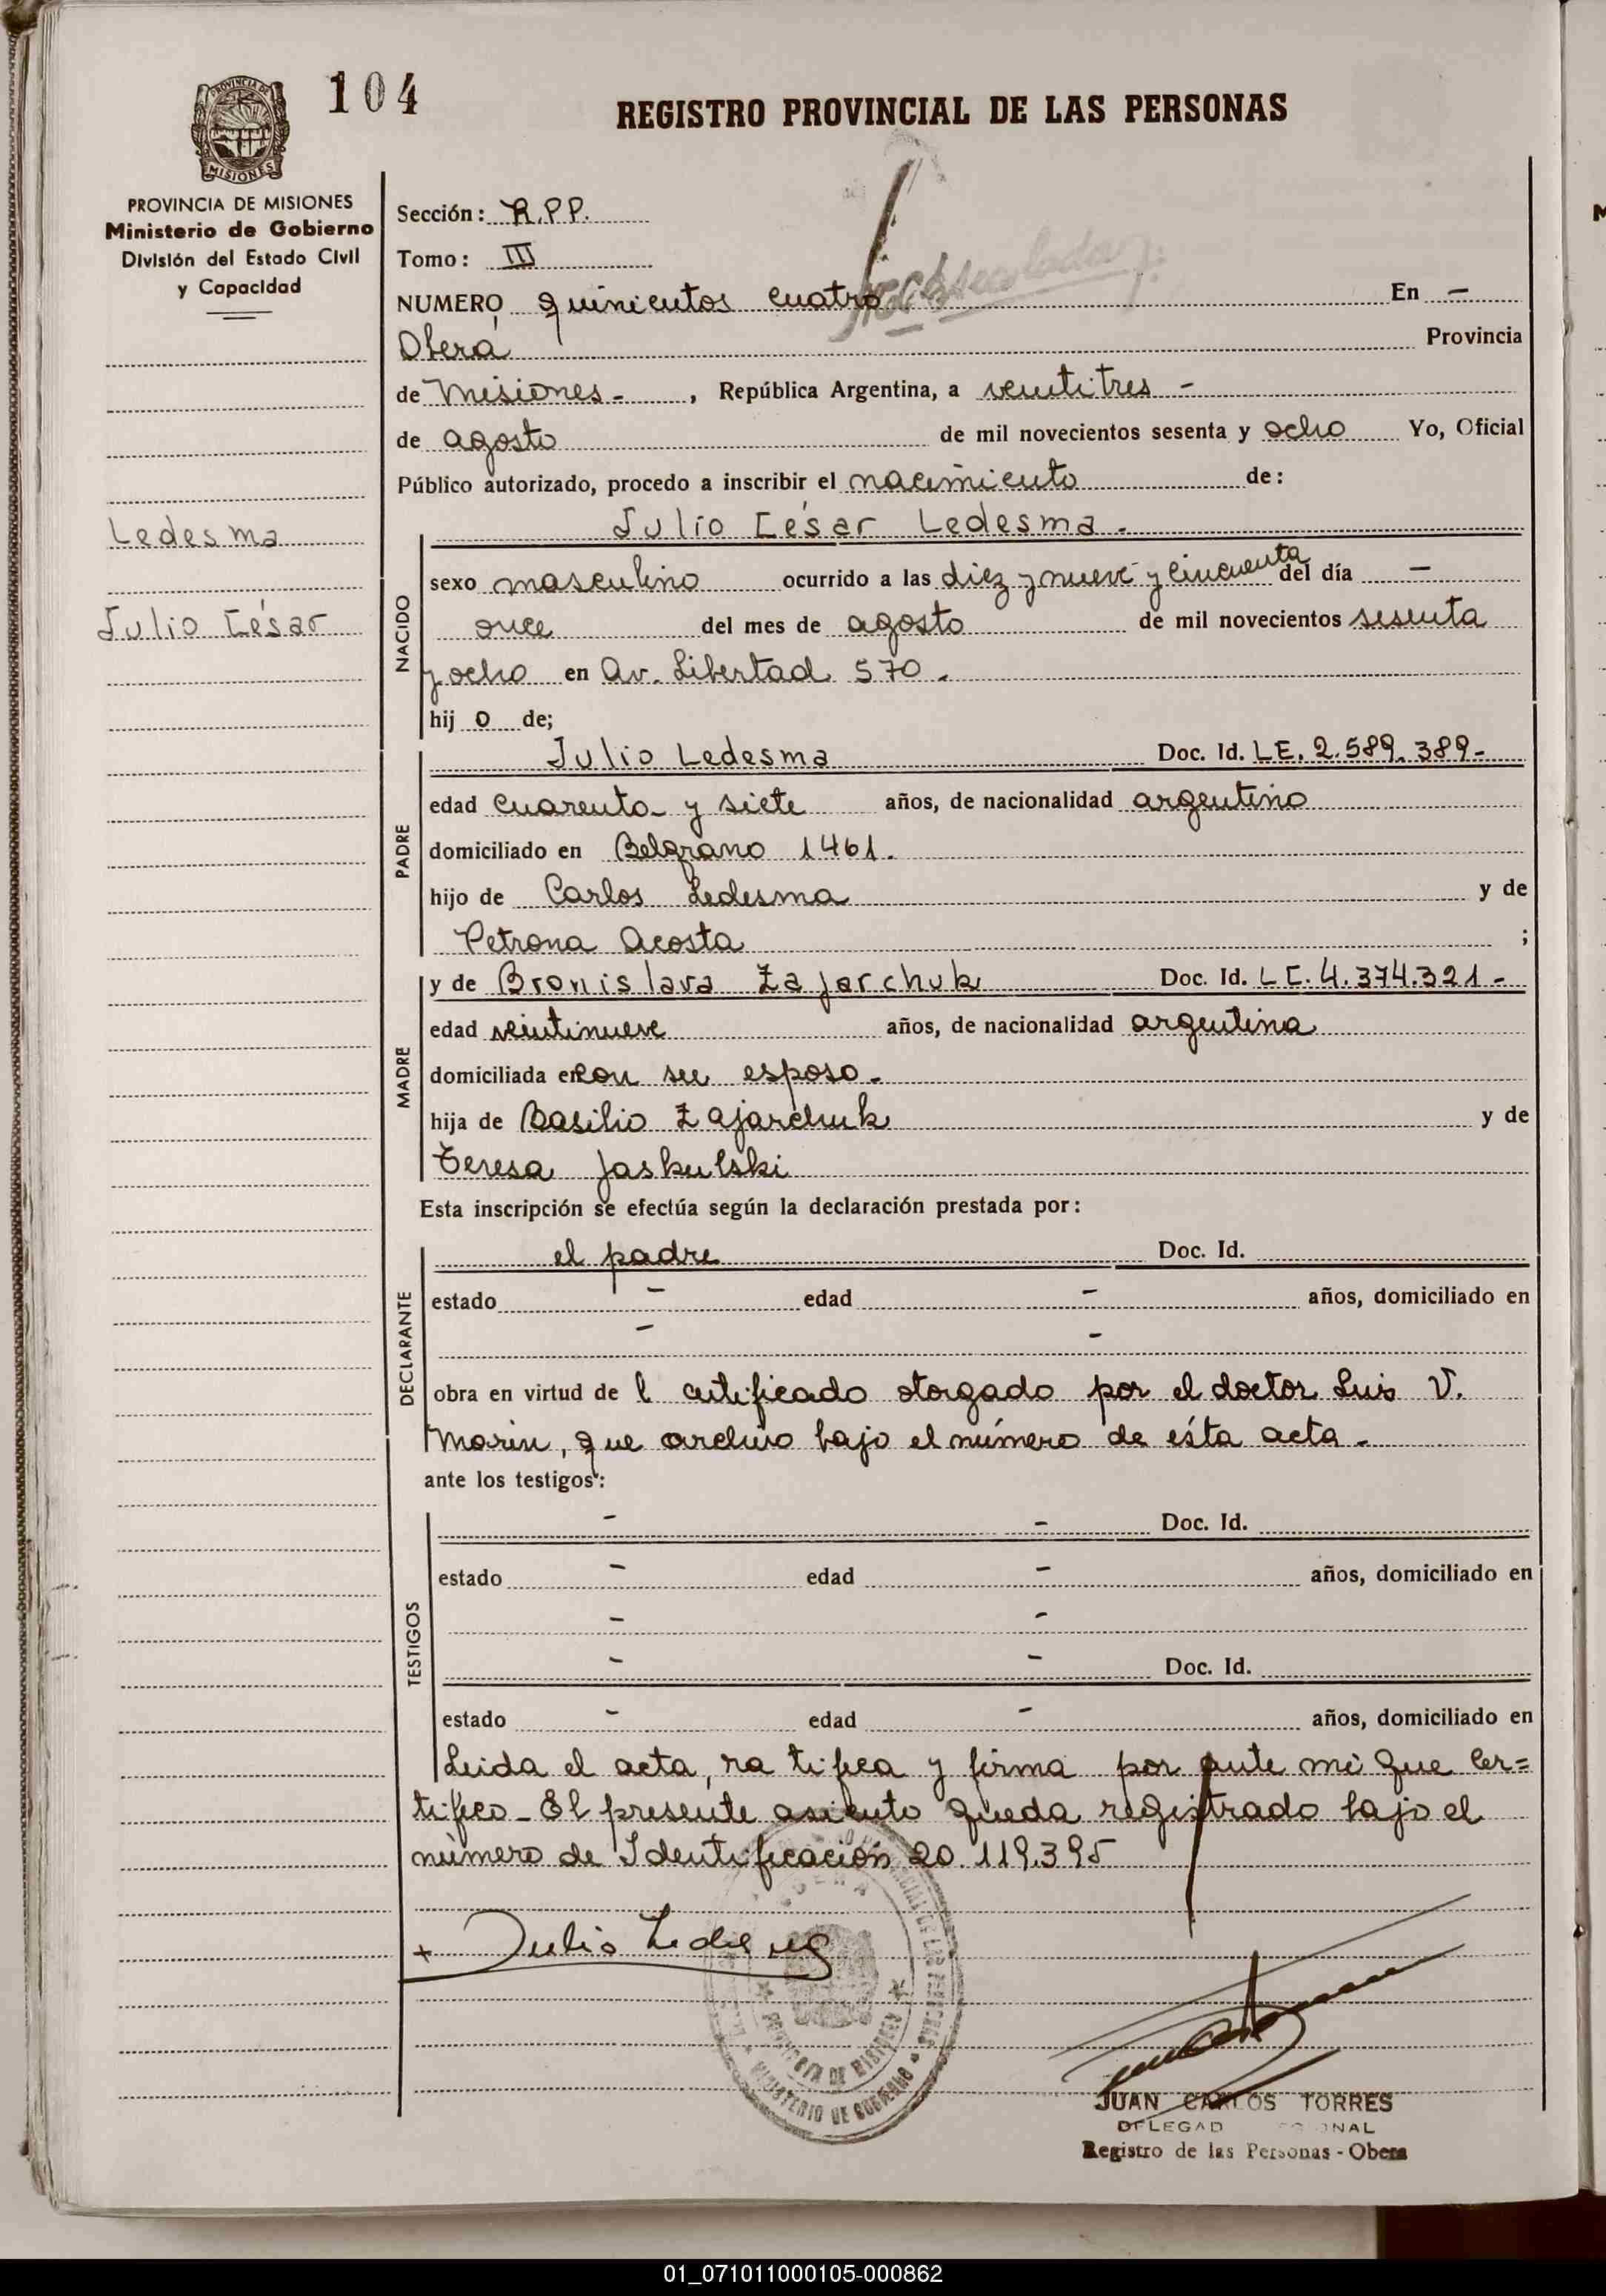 104
REGISTRO PROVINCIAL DE LAS PERSONAS
PROVINCIA DE MISIONES
Ministerio de Gobierno
División del Estado Civil
y Capacidad
Sección: R.P.P.
Tomo: III
NUMERO quinientos cuatro En -
Oberá Provincia
de Misiones - , República Argentina, a veintitres -
de agosto de mil novecientos sesenta y ocho Yo, Oficial
Público autorizado, procedo a inscribir el nacimiento de:
Ledesma
Julio César
Julio César Ledesma -
NACIDO
sexo masculino ocurrido a las diez y nueve y cincuenta del día -
once del mes de agosto de mil novecientos sesenta
y ocho en Av. Libertad 570.
hij o de;
PADRE
Julio Ledesma Doc. Id. LE. 2.589.389-
edad cuarenta y siete años, de nacionalidad argentino
domiciliado en Belgrano 1461.
hijo de Carlos Ledesma y de
Petrona Acosta ;
MADRE
y de Bronislava Zajarchuk Doc. Id. LC. 4.374.321-
edad veintinueve años, de nacionalidad argentina
domiciliada en con su esposo-
hija de Basilio Zajarchuk y de
Teresa Jaskulski
Esta inscripción se efectúa según la declaración prestada por:
DECLARANTE
el padre Doc. Id.
estado - edad - años, domiciliado en
- -
obra en virtud de l certificado otorgado por el doctor Luis V.
Marin, que archivo bajo el número de ésta acta-
ante los testigos:
TESTIGOS
- - Doc. Id.
estado - edad - años, domiciliado en
- -
- - Doc. Id.
estado - edad - años, domiciliado en
Leida el acta, ratifica y firma por ante mi que cer=
tifico - El presente asiento queda registrado bajo el
número de Identificación 20.119.395
+ Julio Ledesma
OBERA
PROVINCIA DE MISIONES
MINISTERIO DE GOBIERNO
JUAN CARLOS TORRES
Registro de las Personas - Obera
01_071011000105-000862